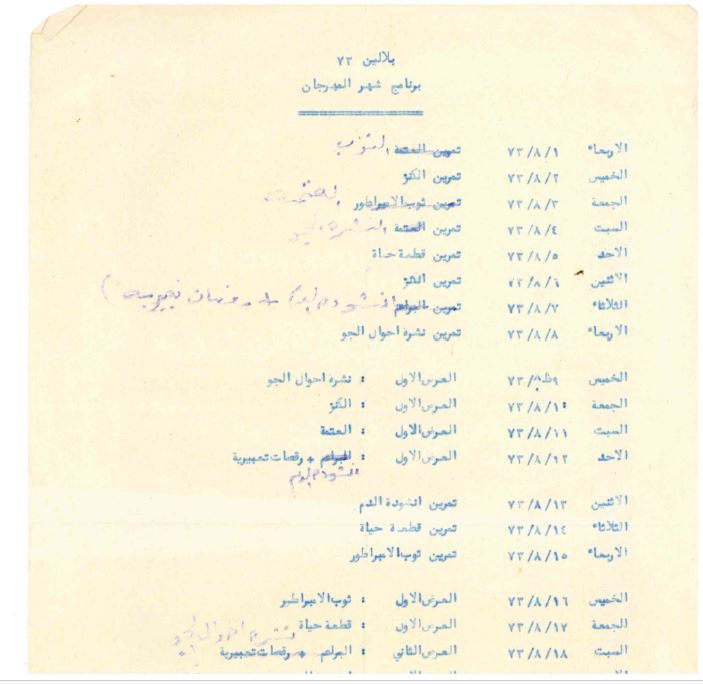 بلالين ٧٣
برنامج شهر المهرجان
الاربعاء ٧٣/٨/١ تمرين العتمة الثوب
الخميس ٧٣/٨/٢ تمرين الكنز
الجمعة ٧٣/٨/٣ تمرين ثوب الامبراطور العتمة
السبت ٧٣/٨/٤ تمرين العتمة النشرة
الاحد ٧٣/٨/٥ تمرين قطعة حياة
الاثنين ٧٣/٨/٦ تمرين الكنز
الثلاثاء ٧٣/٨/٧ تمرين البراعم انشودة الدم + رقصات تعبيرية
الاربعاء ٧٣/٨/٨ تمرين نشرة احوال الجو
الخميس ٧٣/٨/٩ العرض الاول : نشرة احوال الجو
الجمعة ٧٣/٨/١٠ العرض الاول : الكنز
السبت ٧٣/٨/١١ العرض الاول : العتمة
الاحد ٧٣/٨/١٢ العرض الاول : البراعم + رقصات تعبيرية
انشودة الدم
الاثنين ٧٣/٨/١٣ تمرين انشودة الدم
الثلاثاء ٧٣/٨/١٤ تمرين قطعة حياة
الاربعاء ٧٣/٨/١٥ تمرين ثوب الامبراطور
الخميس ٧٣/٨/١٦ العرض الاول : ثوب الامبراطور
الجمعة ٧٣/٨/١٧ العرض الاول : قطعة حياة
نشرة احوال الجو
السبت ٧٣/٨/١٨ العرض الثاني : البراعم + رقصات تعبيرية